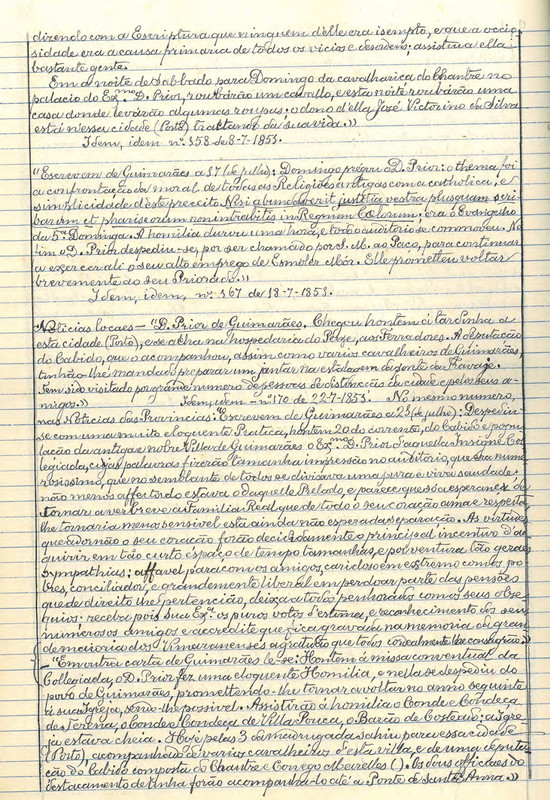 dizendo com a Escriptura que ninguem d'elle era isempto, e que a occio-
sidade era a causa primaria de todos os vicios e desordens; assistiu a ella
bastante gente.
Em a noite de Sabbado para Domingo da cavalharica do Chantre no
palacio do Exmo D. Prior, roubárão um cavallo, e esta noite roubárão uma
casa donde levárão algumas roupas: o dono d'ella José Victorino da Silva
está n'essa cidade (Porto) tractando da sua vida.»
Idem, idem nº 158 de 8-7-1853.
"Escrevem de Guimarães a 17 (de julho): Domingo prégou o D. Prior: o thema foi
a confrontação da moral de todas as Religiões antigas com a catholica, e
simplicidade d'este preceito Nisi abundaverit justitia vestra plusquam scri-
barum et phariseorum non intrabitis in Regnum Cœlorum: era o Evangelho
da 5ª Dominga. A homilia durou uma hora, e todo auditorio se commoveu. No
fim o D. Prior despediu-se, por ser chamado por S. M. ao Paço, para continuar
a exercer ali o seu alto emprego de Esmoler Mór. Elle prometteu voltar
brevemente ao seu Priorado.»
Idem, idem, nº 167 de 18-7-1853.
Noticias locaes - "D. Prior de Guimarães. Chegou hontem á tardinha a
esta cidade (Porto), e se acha na hospedaria do Peixe, aos Ferradores. A deputação
do Cabido, que o acompanhou, assim como varios cavalheiros de Guimarães,
tinhão-lhe mandado preparar um jantar na estalagem da ponte da Travage.
Tem sido visitado por grande numero de pessoas de distincção da cidade e pelos seus a-
migos.» Idem, idem - nº 170 de 22-7-1853. No mesmo numero,
nas Noticias das Provincias: "Escrevem de Guimarães a 21 (de julho): Despediu-
se com uma muito eloquente Pratica, hontem 20 do corrente, do Cabido e popu-
lação da antiga e nobre Villa de Guimarães o Exmo D. Prior d'aquella Insigne Col-
legiada, cujas palavras fizerão tamanha impressão no auditorio, que era nume-
rosissimo, que no semblante de todos se divisava uma pura e viva saudade:
não menos affectado estava o daquelle Prelado, e parece que só a esperança de
tornar a ver breve a familia Real que de todo o seu coração ama e respeita
lhe tornaria menos sensivel esta ainda não esperada separação. As virtudes
que adornão o seu coração forão decididamente o principal incentivo d'ad-
quirir em tão curto espaço de tempo tamanhas, e por ventura tão geraes
sympathias; affavel para com os amigos, caridoso em extremo com os po-
bres, conciliador, e grandemente liberal em perdoar parte das pensões
que de direito lhe pertencião, deixa a todos penhorados com os seus obse-
quios: receba pois sua Exª os puros votos d'estima, e reconhecimento dos seus
numerosos amigos e accredite que fica gravada na memoria da gran-
de maioria dos Vimaranenses a gratidão que todos cordealmente lhe consagrão.»
- "Em outra carta de Guimarães lê-se: Hontem á missa conventual da
Collegiada, o D. Prior fez uma eloquente Homilia, e nella se despediu do
povo de Guimarães, promettendo-lhe tornar a voltar no anno seguinte
á sua Igreja, sendo-lhe possivel. Assistirão á homilia o Conde e Condeça
de Terena, o Conde e Condeça de Villa Pouca, o Barão de Costeado; a Igre-
ja estava cheia. Hoje pelas 3 da madrugada sahiu para essa cidade
(Porto) acompanhado de varios cavalheiros d'esta villa, e de uma deputa-
ção do Cabido composta do Chantre e Conego Meirelles (). Os dous officiaes do
destacamento de linha forão acompanha-lo até a Ponte de Santa Anna.»